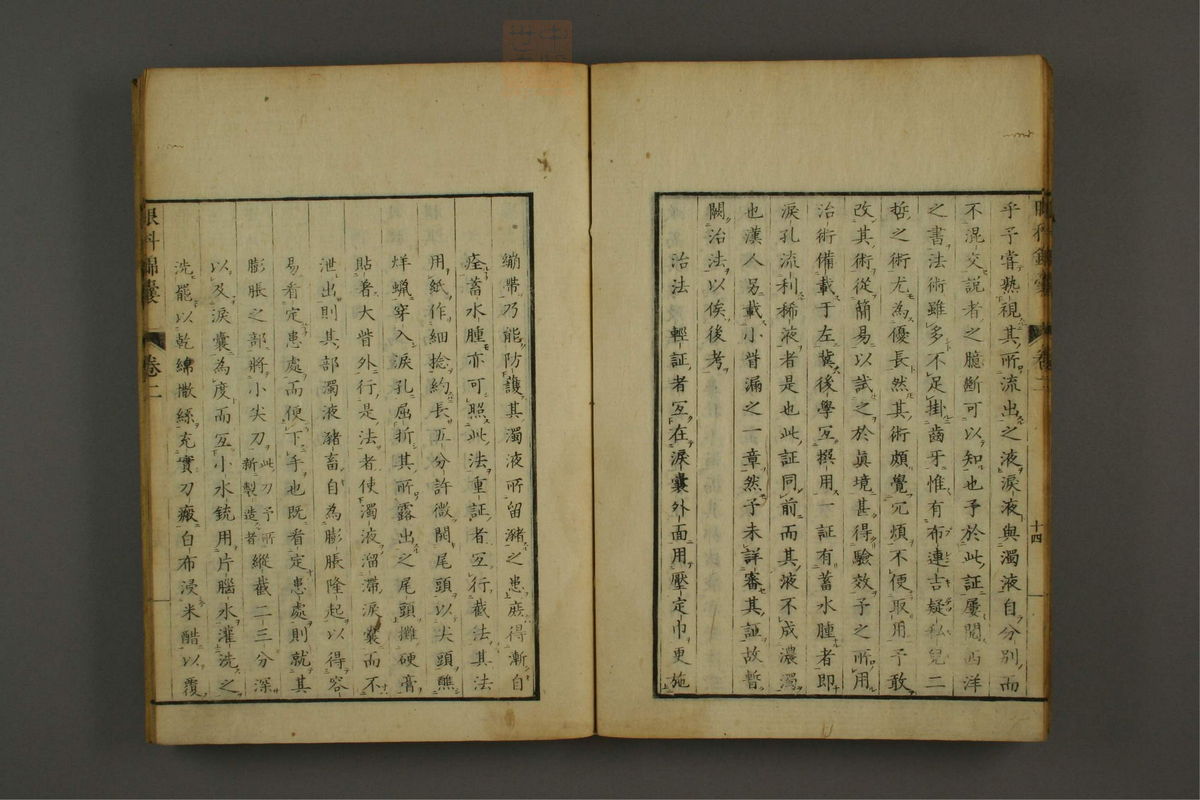 眼科錦囊 卷二 十四
乎予嘗熟視其所流出之液淚液與濁液自分別而
不混交說者之臆斷可以知也予於此証屢閱西洋
之書法術雖多不足掛齒牙惟有布連吉疑私兒二
哲之術尤為優長然其術頗覺冗煩不便取用予敢
改其術從簡易以試之於眞境甚得驗效予之所用
治術備載于左冀後學互撰用一証有蓄水腫者即
淚孔流利稀液者是也此証同前而其液不成濃濁
也漢人另載小眥漏之一章然予未詳審其証故暫
闕治法以俟後考
治法 輕証者互在淚囊外面用壓定巾更施
繃帶乃能防護其濁液所留瀦之患庶得漸自
痊蓄水腫亦可照此法重証者互行截法其法
用紙作細捻約長五分許微閱尾頭以尖頭蘸
烊蝋穿入淚孔屈折其所露出之尾頭攤硬膏
貼着大眥外行是法者使濁液溜滯淚囊而不
泄出則其部濁液瀦畜自為膨脹隆起以得容
易看定患處而便下手也既看定患處則就其
膨脹之部將小尖刀此刀予所新製造者縱截二三分深
以及淚囊為度而互小水銃用片腦水灌洗之
洗罷以乾綿撒絲充實刀瘢白布浸米醋以覆
眼科錦囊 卷二